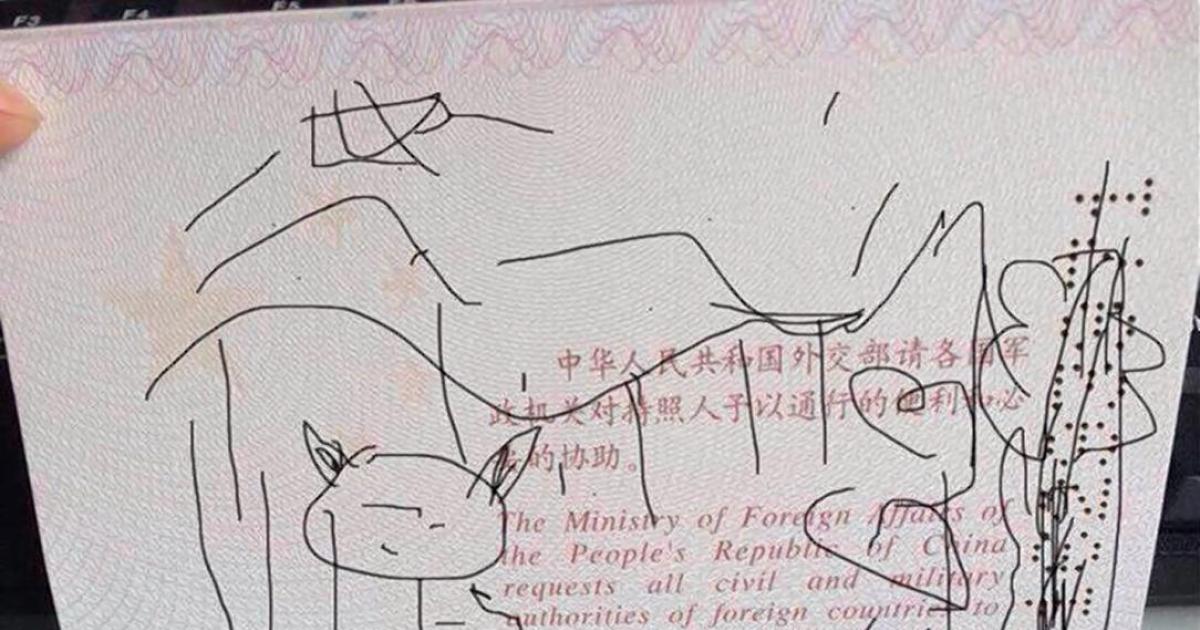 F3
F4
F5
中华人民共和国外交部请各国军
政机关对持照人予以通行的便利和必
的协助。
The Ministry of Foreign Affairs of
the People's Republic of China
requests all civil and military
authorities of foreign countries to